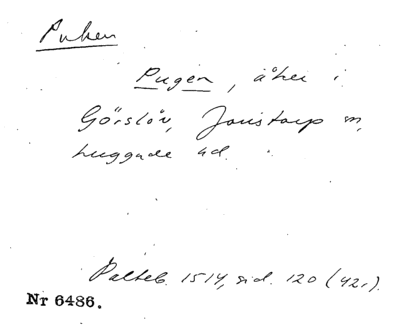 Puken
Pugen, åker i
Görslöv, Jonstorp m,
huggade ud.
Palteb. 1514, sid. 120 (42,).
Nr 6486.